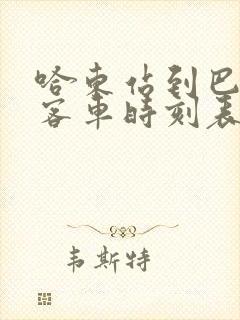 哈东佔到巴
客车时刻表
韦斯特